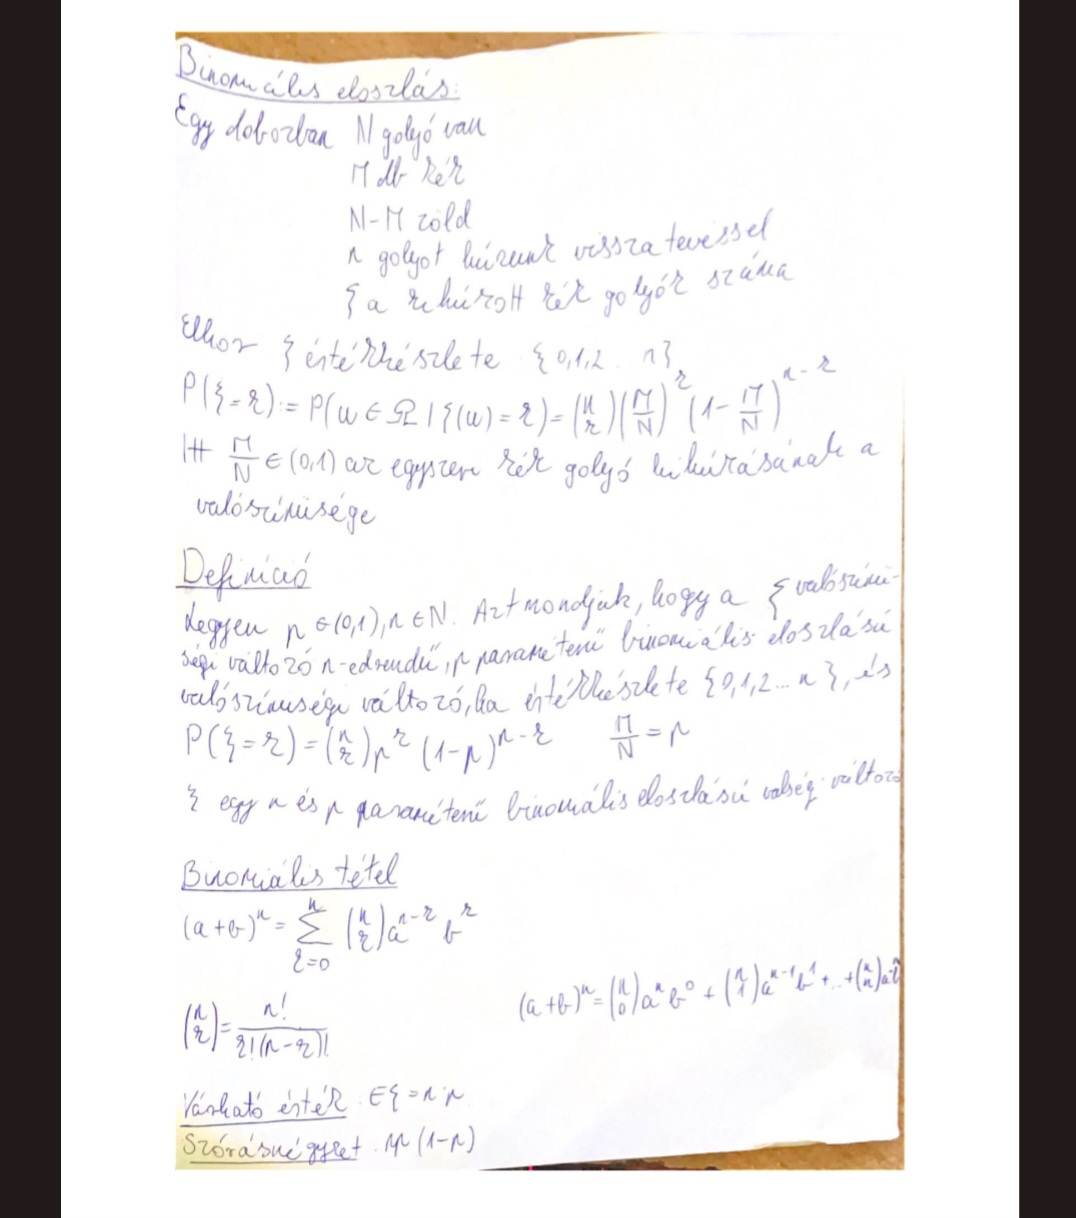 Binomiális eloszlás:
Egy dobozban N golyó van
M db kék
N-M zöld
n golyót húzunk visszatevéssel
ξ a kihúzott kék golyók száma
Ekkor ξ értékkészlete {0,1,2 .. n}
P(ξ=k):=P(ω∈Ω|ξ(ω)=k)=(n k)(M/N)^k(1-M/N)^n-k
Itt M/N ∈(0,1) az egyszeri kék golyó kihúzásának a
valószínűsége
Definíció
Legyen p∈(0,1), n∈N. Azt mondjuk, hogy a ξ valószínű-
ségi változó n-edrendű, p paraméterű binomiális eloszlású
valószínűségi változó, ha értékkészlete {0,1,2...n}, és
P(ξ=k)=(n k)p^k (1-p)^n-k M/N=p
ξ egy n és p paraméterű binomiális eloszlású valség. változó
Binomiális tétel
(a+b)^n=∑_{k=0}^n (n k)a^n-k b^k
(a+b)^n=(n 0)a^n b^0+(n 1)a^n-1 b^1+..+(n n)
(n k)=n!/k!(n-k)!
Várható érték Eξ=n·p
Szórásnégyzet. np(1-p)